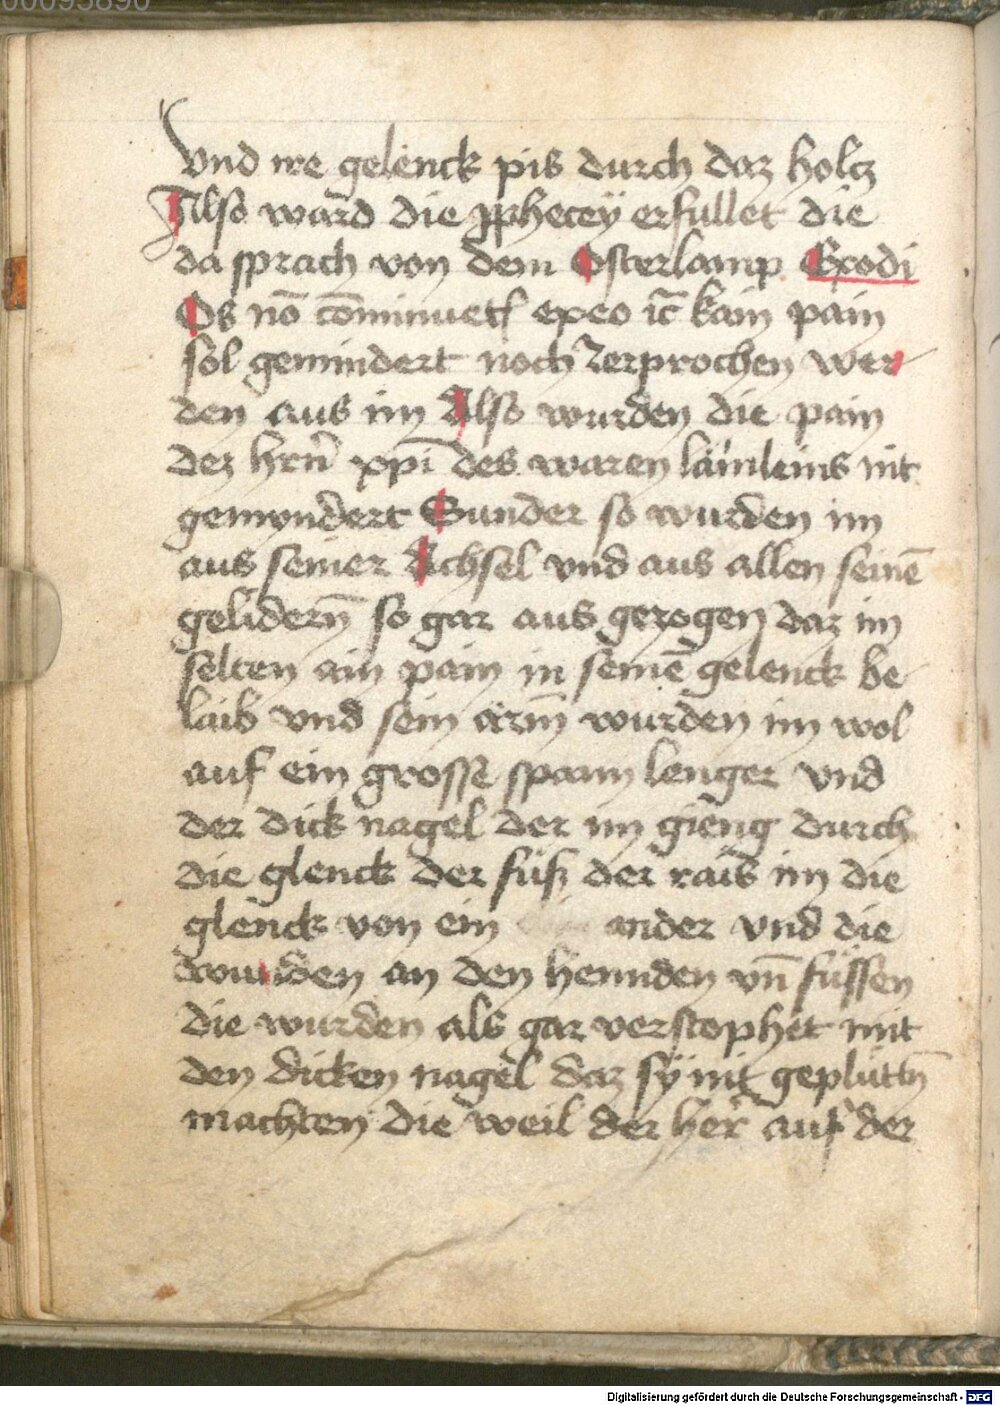 00095890
Vnd ire gelenck pis durch daz holcz
Also ward die ꝓphecey erfullet die
da sprach von dem Osterlamp Exodi
Os nō cōminuetꝭ ex eo ic̄ kain pain
sol gemindert noch zerprochen wer
den aus im Also wurden die pain
dez hrn̄ xpī des waren lämleins nit
gemyndert Sunder so wurden im
aus seiner Achsel vnd aus allen seinē
gelidern̄ so gar aus gezogen daz im
selten ain pain in seinē gelenck be
laib vnd sein arm̄ wurden im wol
auf ein grosse spann lenger vnd
der dick nagel der im gieng durch
die glenck der füß der raid im die
glenck von ein ander vnd die
wunden an den hennden vn̄ füssen
die wurden als gar verstophet mit
den dicken nagel daz sÿ nit geplüttn̄
machten die weil der her auf der
Digitalisierung gefördert durch die Deutsche Forschungsgemeinschaft - DFG